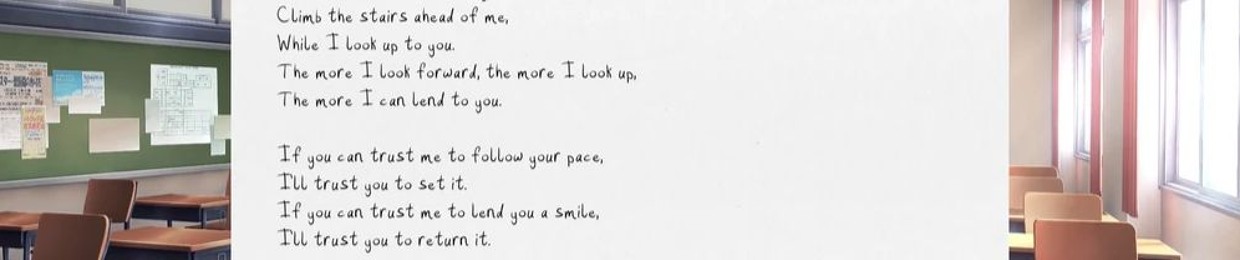 Climb the stairs ahead of me,
While I look up to you.
The more I look forward, the more I look up,
The more I can lend to you.
If you can trust me to follow your pace,
I'll trust you to set it.
If you can trust me to lend you a smile,
I'll trust you to return it.